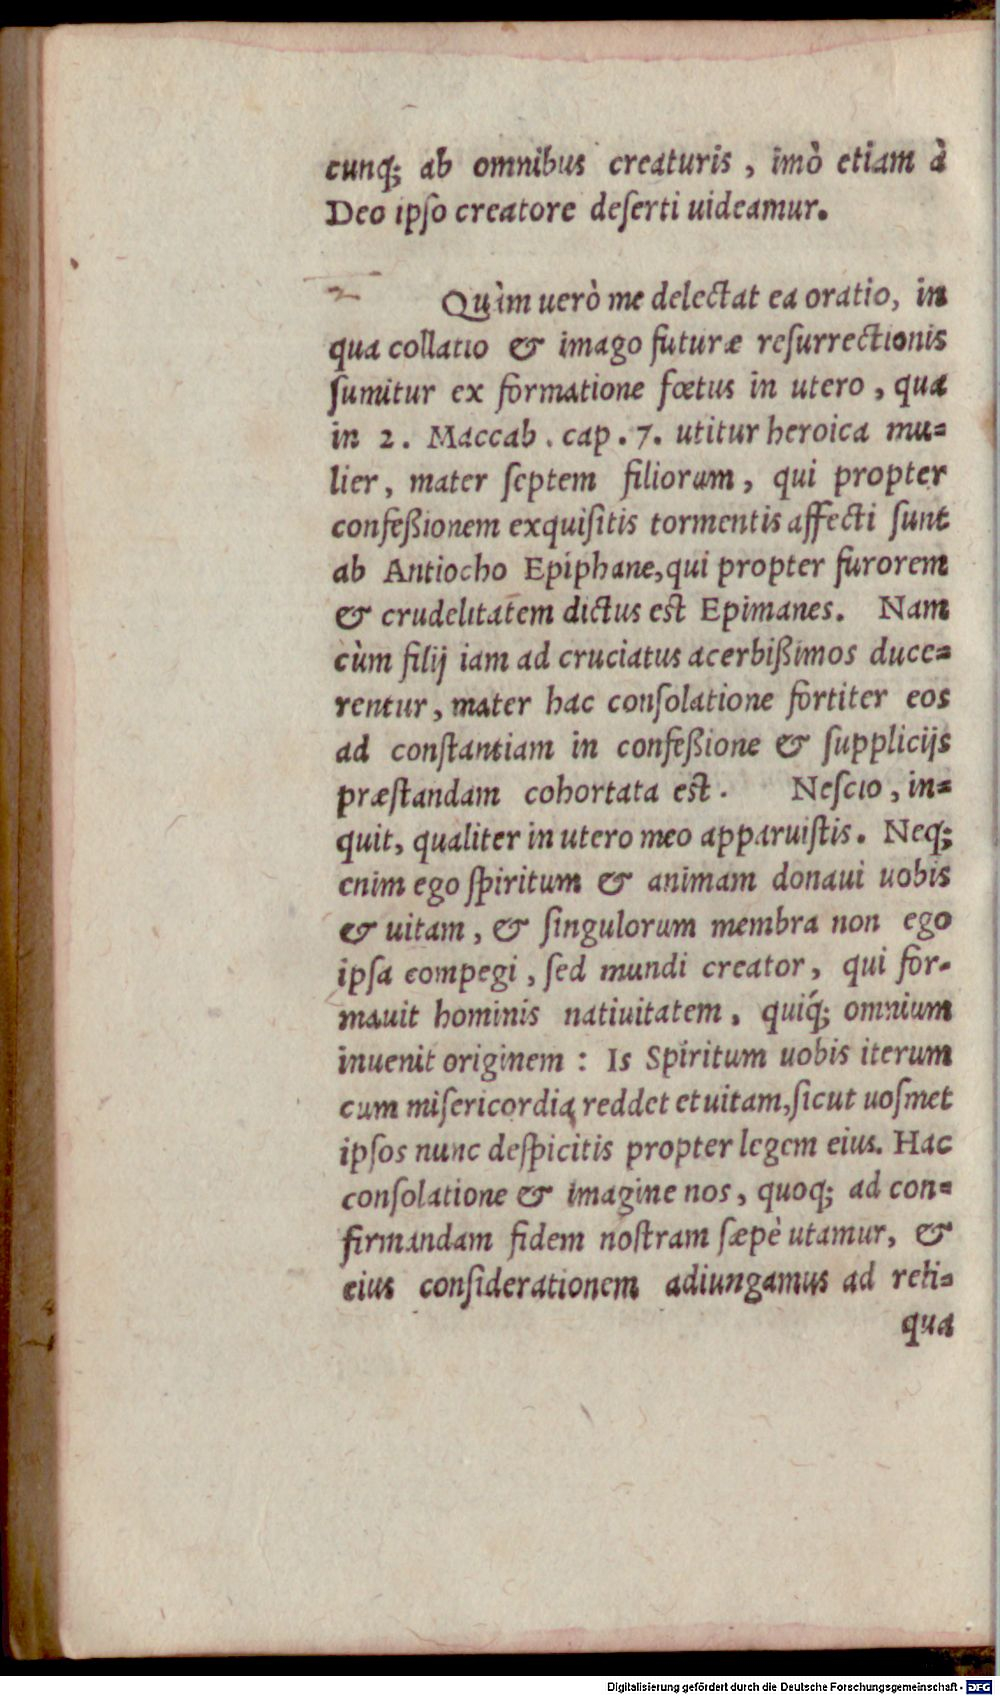 cunq; ab omnibus creaturis, imò etiam à
Deo ipso creatore deserti uideamur.
Quàm uerò me delectat ea oratio, in
qua collatio & imago futuræ resurrectionis
sumitur ex formatione fœtus in utero, qua
in 2. Maccab. cap. 7. utitur heroica mu=
lier, mater septem filiorum, qui propter
confeßionem exquisitis tormentis affecti sunt
ab Antiocho Epiphane, qui propter furorem
& crudelitatem dictus est Epimanes. Nam
cùm filij iam ad cruciatus acerbißimos duce=
rentur, mater hac consolatione fortiter eos
ad constantiam in confeßione & supplicijs
præstandam cohortata est. Nescio, in=
quit, qualiter in utero meo apparuistis. Neq;
enim ego spiritum & animam donaui uobis
& uitam, & singulorum membra non ego
ipsa compegi, sed mundi creator, qui for-
mauit hominis natiuitatem, quiq́; omnium
inuenit originem: Is Spiritum uobis iterum
cum misericordia reddet et uitam, sicut uosmet
ipsos nunc despicitis propter legem eius. Hac
consolatione & imagine nos, quoq; ad con=
firmandam fidem nostram sæpè utamur, &
eius considerationem adiungamus ad reli=
qua
Digitalisierung gefördert durch die Deutsche Forschungsgemeinschaft - DFG